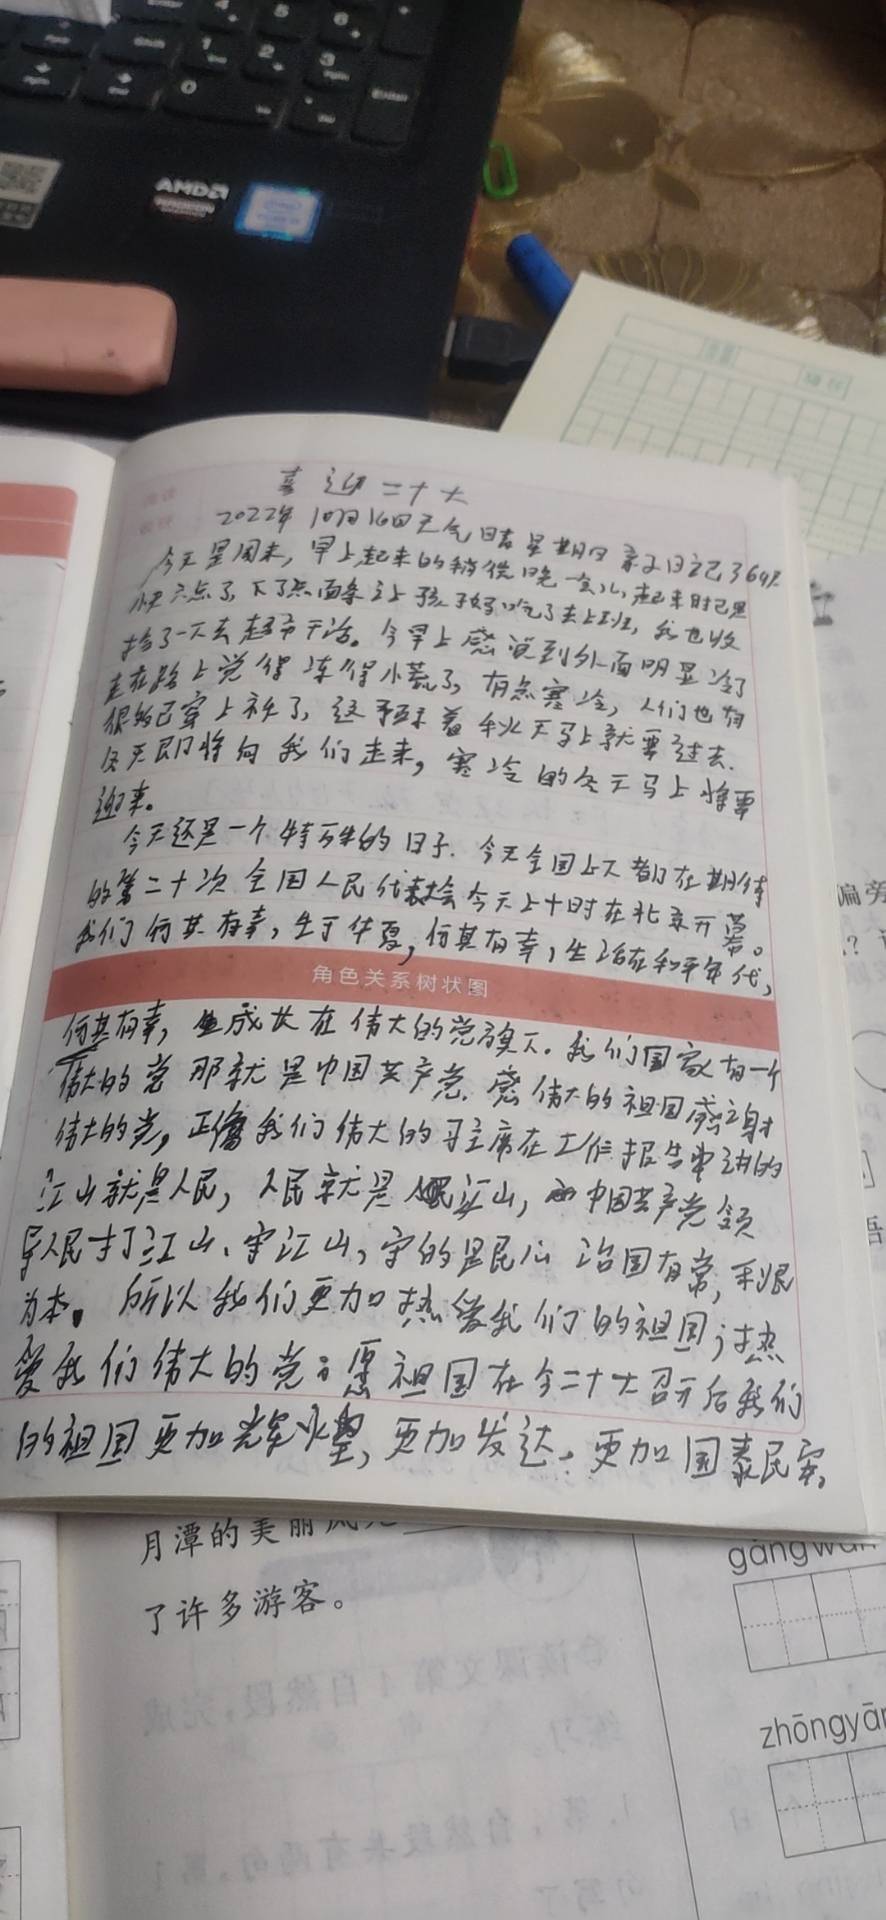 Enter
4
5
6
Shift
1
2
3
0
Enter
AMD
RADEON
喜迎二十大
2022年10月16日天气晴 星期日 亲子日记364
今天是周末，早上起来的稍微晚一会儿，起来时已是
快六点了，下了点面条让孩子妈吃了去上班，我也收
拾了一下去超市干活。今早上感觉到外面明显冷了
走在路上觉得冻得小慌了，有点寒冷，人们也有
很多已穿上袄了，这预示着秋天马上就要过去.
冬天即将向我们走来，寒冷的冬天马上将要
迎来。
今天还是一个特殊的日子.今天全国上下都在期待
的第二十次全国人民代表大会今天上午十时在北京开幕。
我们何其有幸，生于华夏，何其有幸，生活在和平年代，
角色关系树状图
何其有幸，生成长在伟大的党旗下.我们国家有一个
伟大的党 那就是中国共产党.感伟大的祖国感谢
伟大的党，正像我们伟大的习主席在工作报告中讲的
江山就是人民，人民就是江山，中国共产党领
导人民打江山、守江山，守的是民心 治国有常，利民
为本。所以我们更加热爱我们的祖国；热
爱我们伟大的党；愿祖国在今二十大召开后我们
的祖国更加辉煌，更加发达，更加国泰民安。
偏旁
月潭的美丽风光
了许多游客。
gǎng wān
zhōng yāng